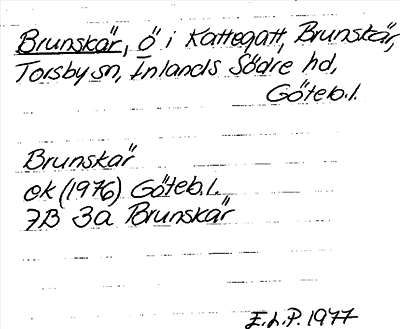 Brunskär, ö i Kattegatt, Brunskär,
Torsby sn, Inlands Södre hd,
Göteb.l.
Brunskär
ek (1976) Göteb.l.
7B 3a Brunskär
E.L.P. 1977